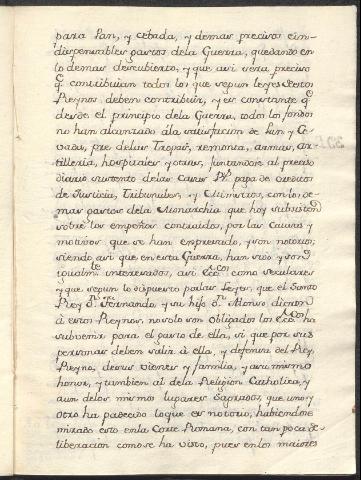 para Pan, y Cebada, y demas precisos é in-
dispensables gastos dela Guerra, quedando en
lo demas descubierto, y que asi será preciso
q.e contribuian todos los que segun leyes destos
Reynos deben contribuir, y es constante q.e
desde el principio dela Guerra, todos los fondos
no han alcanzado ala satisfacion de Pan y Ce-
vada, pre delas Tropas, remonta, armas, ar-
tilleria, hospitales y otros, juntandose al preciso
diario sustento delas Casas R.s paga de creditos
de Justicia, Tribunales, y Ministros, con los de-
mas gastos dela Monarchia que hoy subsisten
sobre los empeños contraidos, por las causas y
motivos que se han expresado, y son notorios;
siendo asi que en esta Guerra, han sido y son
igualm.te interesados, asi Ecc.os como seculares
y que segun lo dispuesto por las Leyes, que el Santo
Rey D.n Fernando, y su hijo D.n Alonso dieron
á estos Reynos, no solo son obligados los Ecc.os ha
subvenir para el gasto de ella, si que por sus
personas deben salir á ella, y defensa del Rey,
Reyno, de sus vienes y familia, y aun mismo
honor, y tambien al dela Religion Catholica, y
aun delos mismos lugares sagrados, que uno y
otro ha padecido loque es notorio, habiendose
mirado esto enla Corte Romana, con tan poca de-
liberacion como se ha visto, pues en los maiores